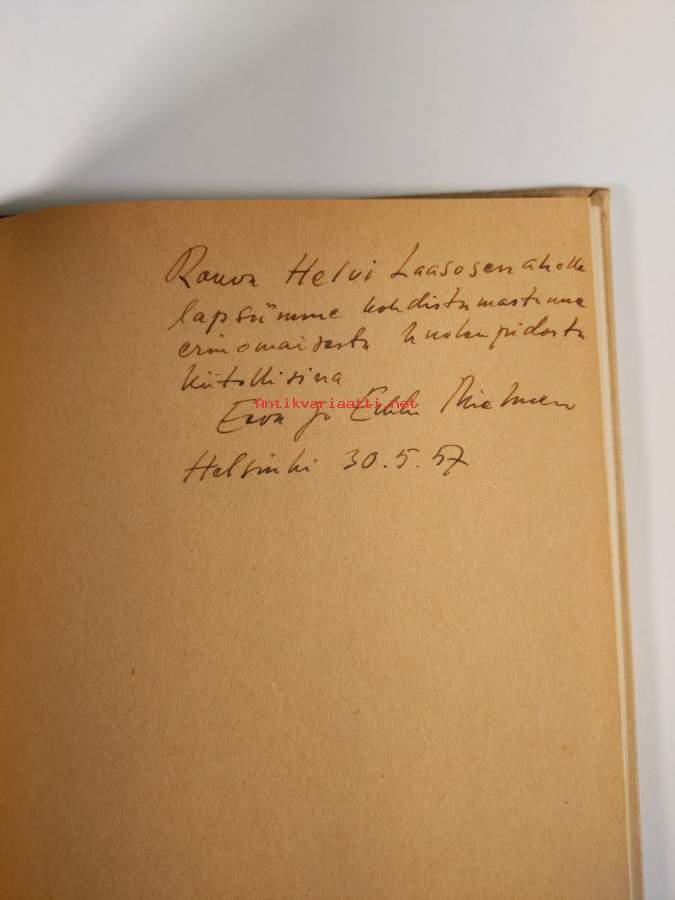 Rouva Helvi Laasosenaholle
lapsiimme kohdistumastanne
erinomaisesta huolenpidosta
kiitollisina
Antikvariaatti.net
Eeva ja Erkki
Helsinki 30.5.57